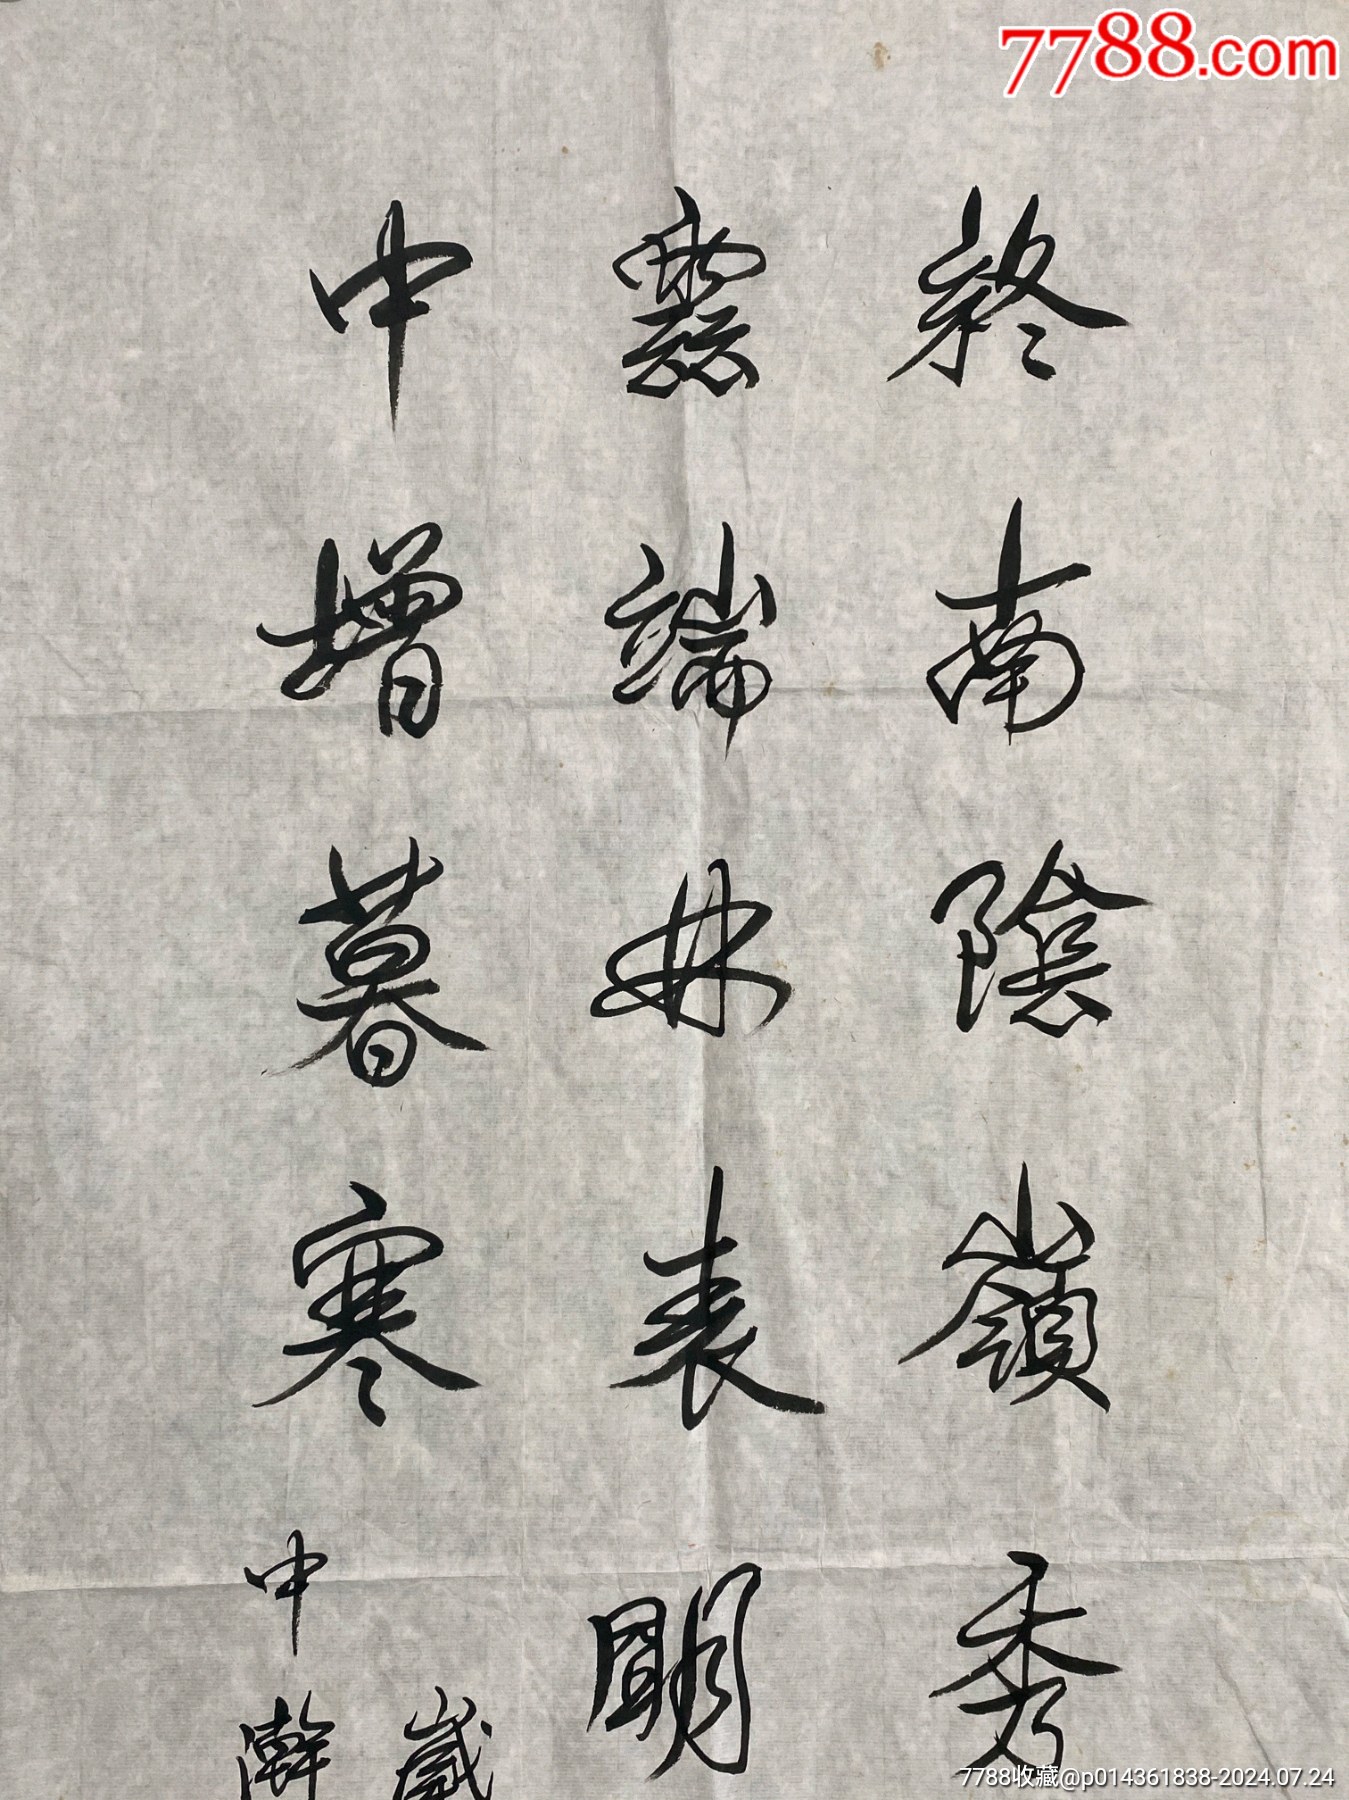 7788.com
終南陰嶺秀
雲端林表明
中增暮寒
歲
中瀚
7788收藏@p014361838-2024.07.24